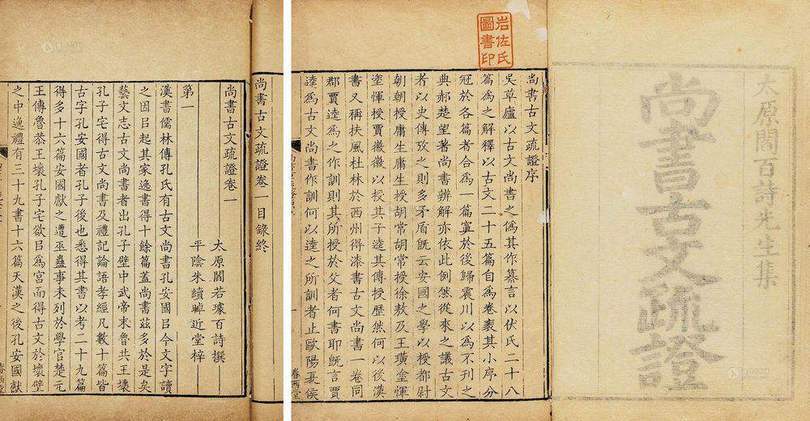 太原閻百詩先生集
尚書古文疏證
岩佐氏
圖書印
尚書古文疏證序
吳草廬以古文尚書之偽其作纂言以伏氏二十八
篇為之解釋以古文二十五篇自為卷袠其小序分
冠於各篇者合為一篇寘於後歸震川以為不刊之
典郝楚望著尚書辨解亦依此例然從來之議古文
者以史傳攷之則多矛盾既云安國之學以授都尉
朝朝授庸生庸生授胡常胡常授徐敖及王璜塗惲
塗惲授賈徽徽以授其子逵其傳授歷然何以後漢
書又稱扶風杜林於西州得漆書古文尚書一卷同
郡賈逵為之作訓則其所授於父者何書耶既言賈
逵為古文尚書作訓何以逵之所訓者止歐陽夏侯
眷西堂
尚書古文疏證卷一目錄終
尚書古文疏證卷一
太原閻若璩百詩撰
平陰朱續晫近堂梓
第一
漢書儒林傳孔氏有古文尚書孔安國㠯今文字讀
之因㠯起其家逸書得十餘篇蓋尚書茲多於是矣
藝文志古文尚書者出孔子壁中武帝末魯共王壞
孔子宅得古文尚書及禮記論語孝經凡數十篇皆
古字孔安國者孔子後也悉得其書以考二十九篇
得多十六篇安國獻之遭巫蠱事未列於學官楚元
王傳魯恭王壞孔子宅欲㠯為宮而得古文於壞壁
之中逸禮有三十九書十六篇天漢之後孔安國獻
眷西堂